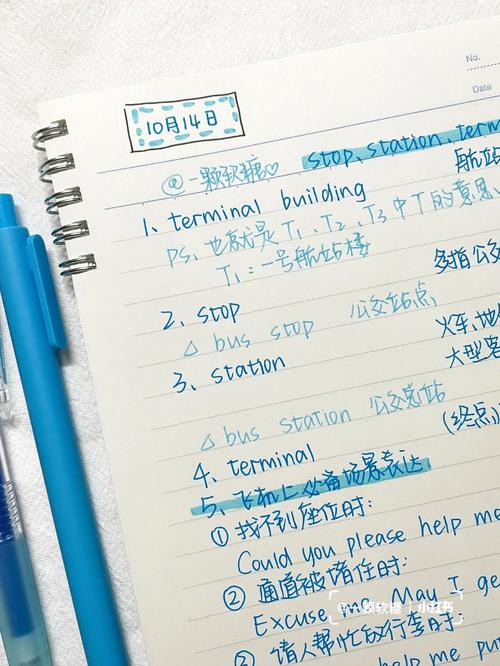 No.
Date
10月14日
@一颗软糖♡ stop、station、term
1、terminal building 航站
PS、也就是 T1、T2、T3 中T的意思
T1:一号航站楼
2、stop 多指公交
△ bus stop 公交站点
3、station 火车、地
大型客
△ bus station 公交总站
4、terminal (终点)
5、飞机上必备场景表达
① 找不到座位时:
Could you please help me
② 通道被堵住时:
Excuse me, May I ge
③ 请人帮忙放行李时:
help me pu
@一颗软糖 小红书